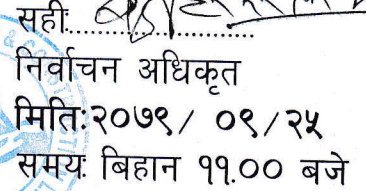 सही:....................
निर्वाचन अधिकृत
मिति:२०७९/ ०९/२५
समय: बिहान ११.०० बजे